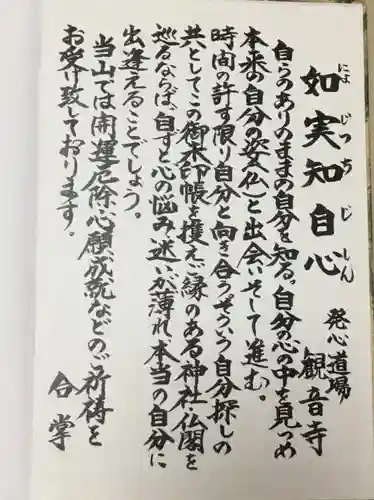 如実知自心
にょじっちじしん
発心道場
観音寺
自らのありのままの自分を知る。自分の心の中を見つめ
本来の自分の姿(仏)と出会いそして進む。
時間の許す限り自分と向き合うぞういう自分探しの
共としてこの御朱印帳を携えご縁のある神社仏閣を
巡るならば、自ずと心の悩み迷いが薄れ、本当の自分に
出逢えることでしょう。
当山では開運厄除心願成就などのご祈祷を
お受け致しております。
合掌